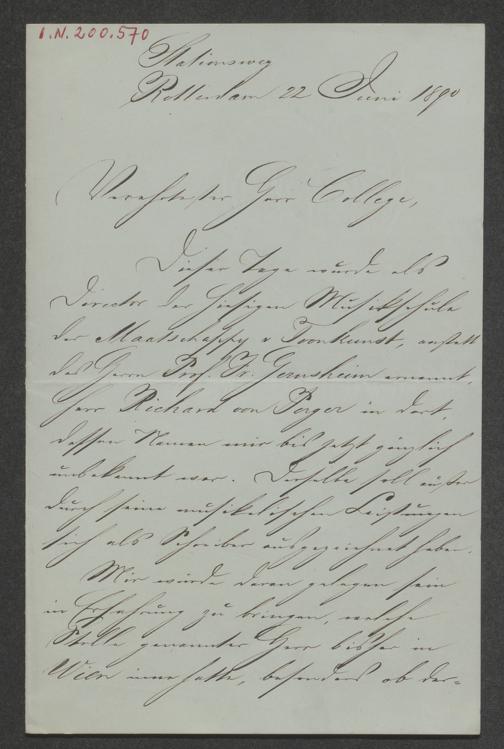 I.N. 200.570
Stationsweg
Rotterdam 22 Juni 1890
Verehrtester Herr College,
Dieser Tage wurde als
Director der hiesigen Musikschule
der Maatschappy v Toonkunst, anstatt
des Herrn Prof. Fr. Gernsheim ernannt,
Herr Richard von Perger in dort,
dessen Namen mir bis jetzt gänzlich
unbekannt war. Derselbe soll außer
durch seine musikalischen Leistungen
sich als Schreiber ausgezeichnet haben.
Mir würde daran gelegen sein
in Erfahrung zu bringen, welche
Stelle genannter Herr bisher in
Wien inne hatte, besonders ob der-